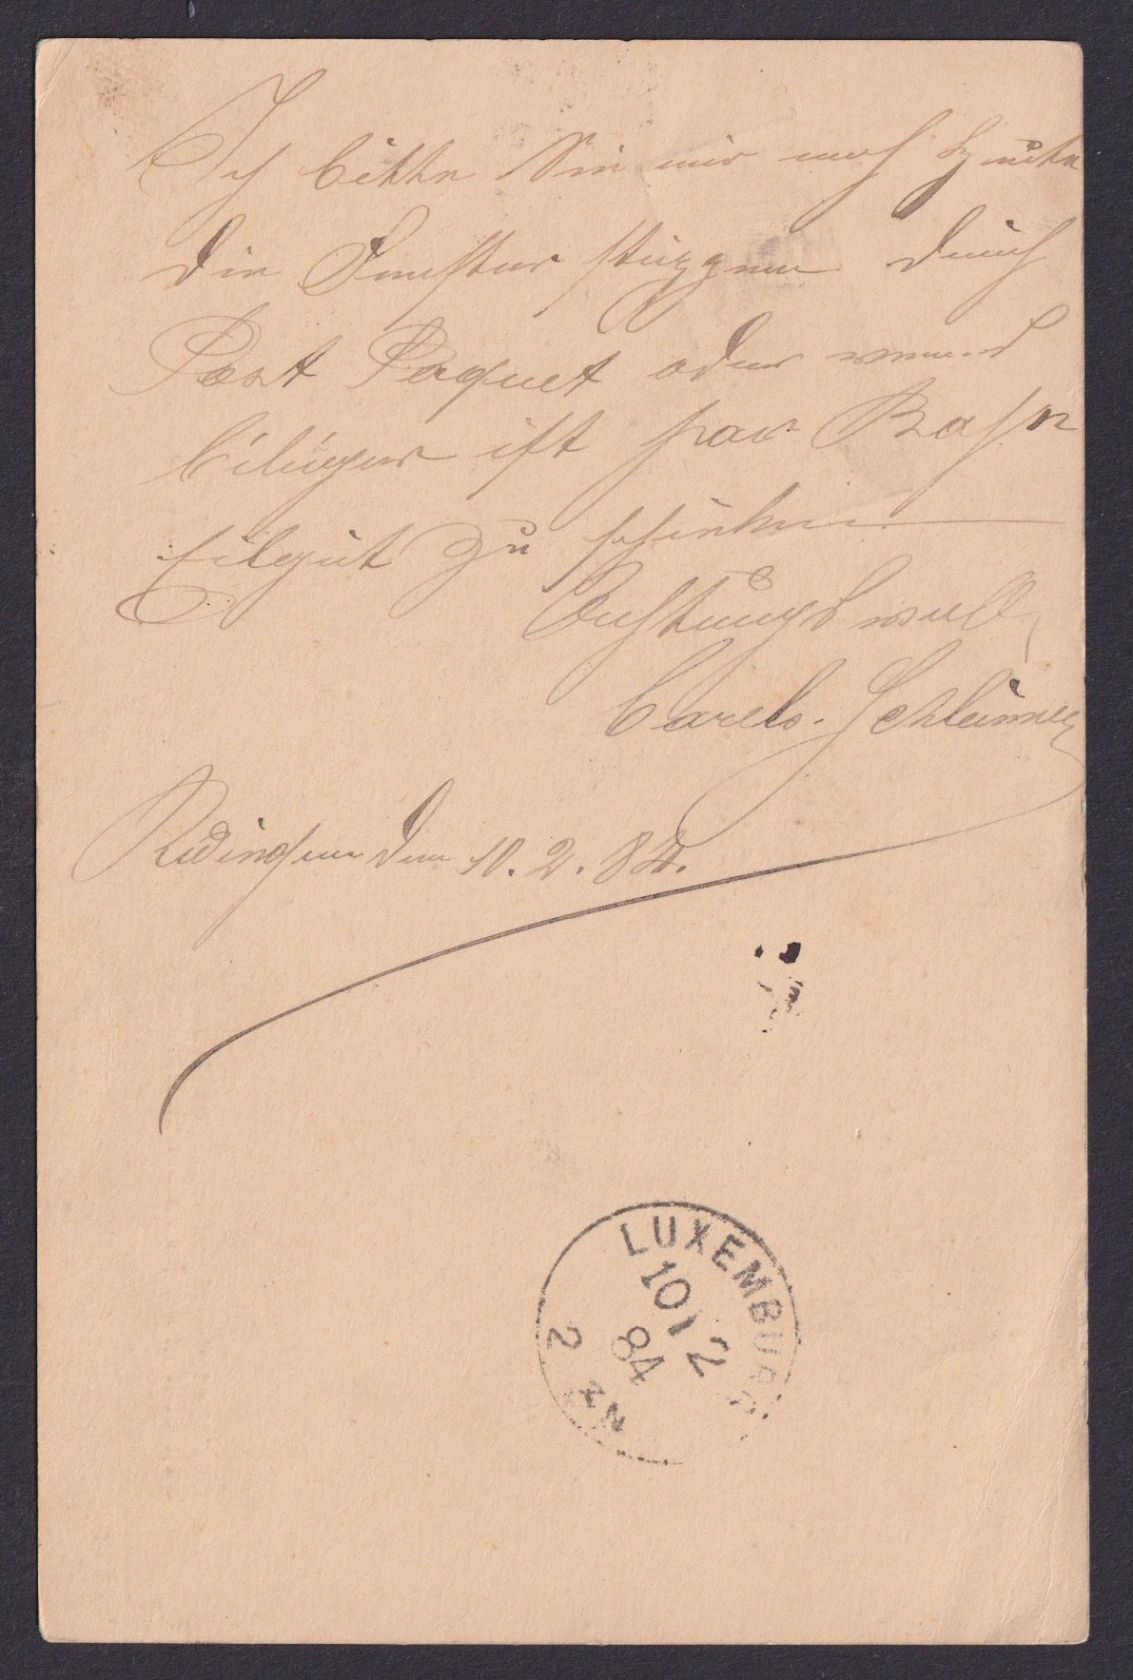 Ich bitte Sie mir noch heute
die Fenster stuzzen durch
Post Paquet oder wenns
biliger ist par Bahn
Eilgut zu schicken
Achtungsvoll
Carels. Schlimmer
Redingen den 10.2.84.
LUXEMBURG
10 2
84
2 N